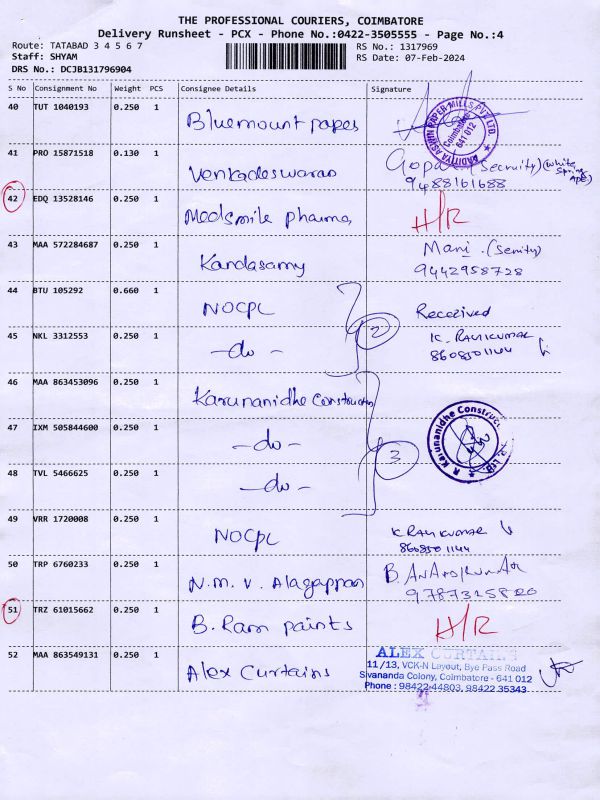 THE PROFESSIONAL COURIERS, COIMBATORE
Delivery Runsheet - PCX - Phone No.:0422-3505555 - Page No.:4
Route: TATABAD 3 4 5 6 7
Staff: SHYAM
DRS No.: DCJB131796904
RS No.: 1317969
RS Date: 07-Feb-2024
S No Consignment No Weight PCS Consignee Details Signature
40 TUT 1040193 0.250 1 Bluemount papes
ADITYA ASWIN PAPER MILLS PVT LTD. Coimbatore 641 012
41 PRO 15871518 0.130 1 Venkadeswaran Gopal (Secruity) (White Spring Apt)
9488161688
42 EDQ 13528146 0.250 1 Medsmile pharma, H/R
43 MAA 572284687 0.250 1 Kandasamy Mani . (Serity)
9442958728
44 BTU 105292 0.660 1 NOCPL 2 Received
45 NKL 3312553 0.250 1 -do- K. RAVIKUMAR
8608501144
46 MAA 863453096 0.250 1 Karunanidhe Construction
47 IXM 505844600 0.250 1 -do- 3 Karunanidhe Construc
48 TVL 5466625 0.250 1 -do-
49 VRR 1720008 0.250 1 NOCPL K RAVIKUMAR
8608501144
50 TRP 6760233 0.250 1 N.M. V. Alagappan B.
9787315820
51 TRZ 61015662 0.250 1 B. Ram paints H/R
52 MAA 863549131 0.250 1 Alex Curtains ALEX CURTAINS
11/13, VCK-N Layout, Bye Pass Road
Sivananda Colony, Coimbatore - 641 012
Phone : 98422 44803, 98422 35343